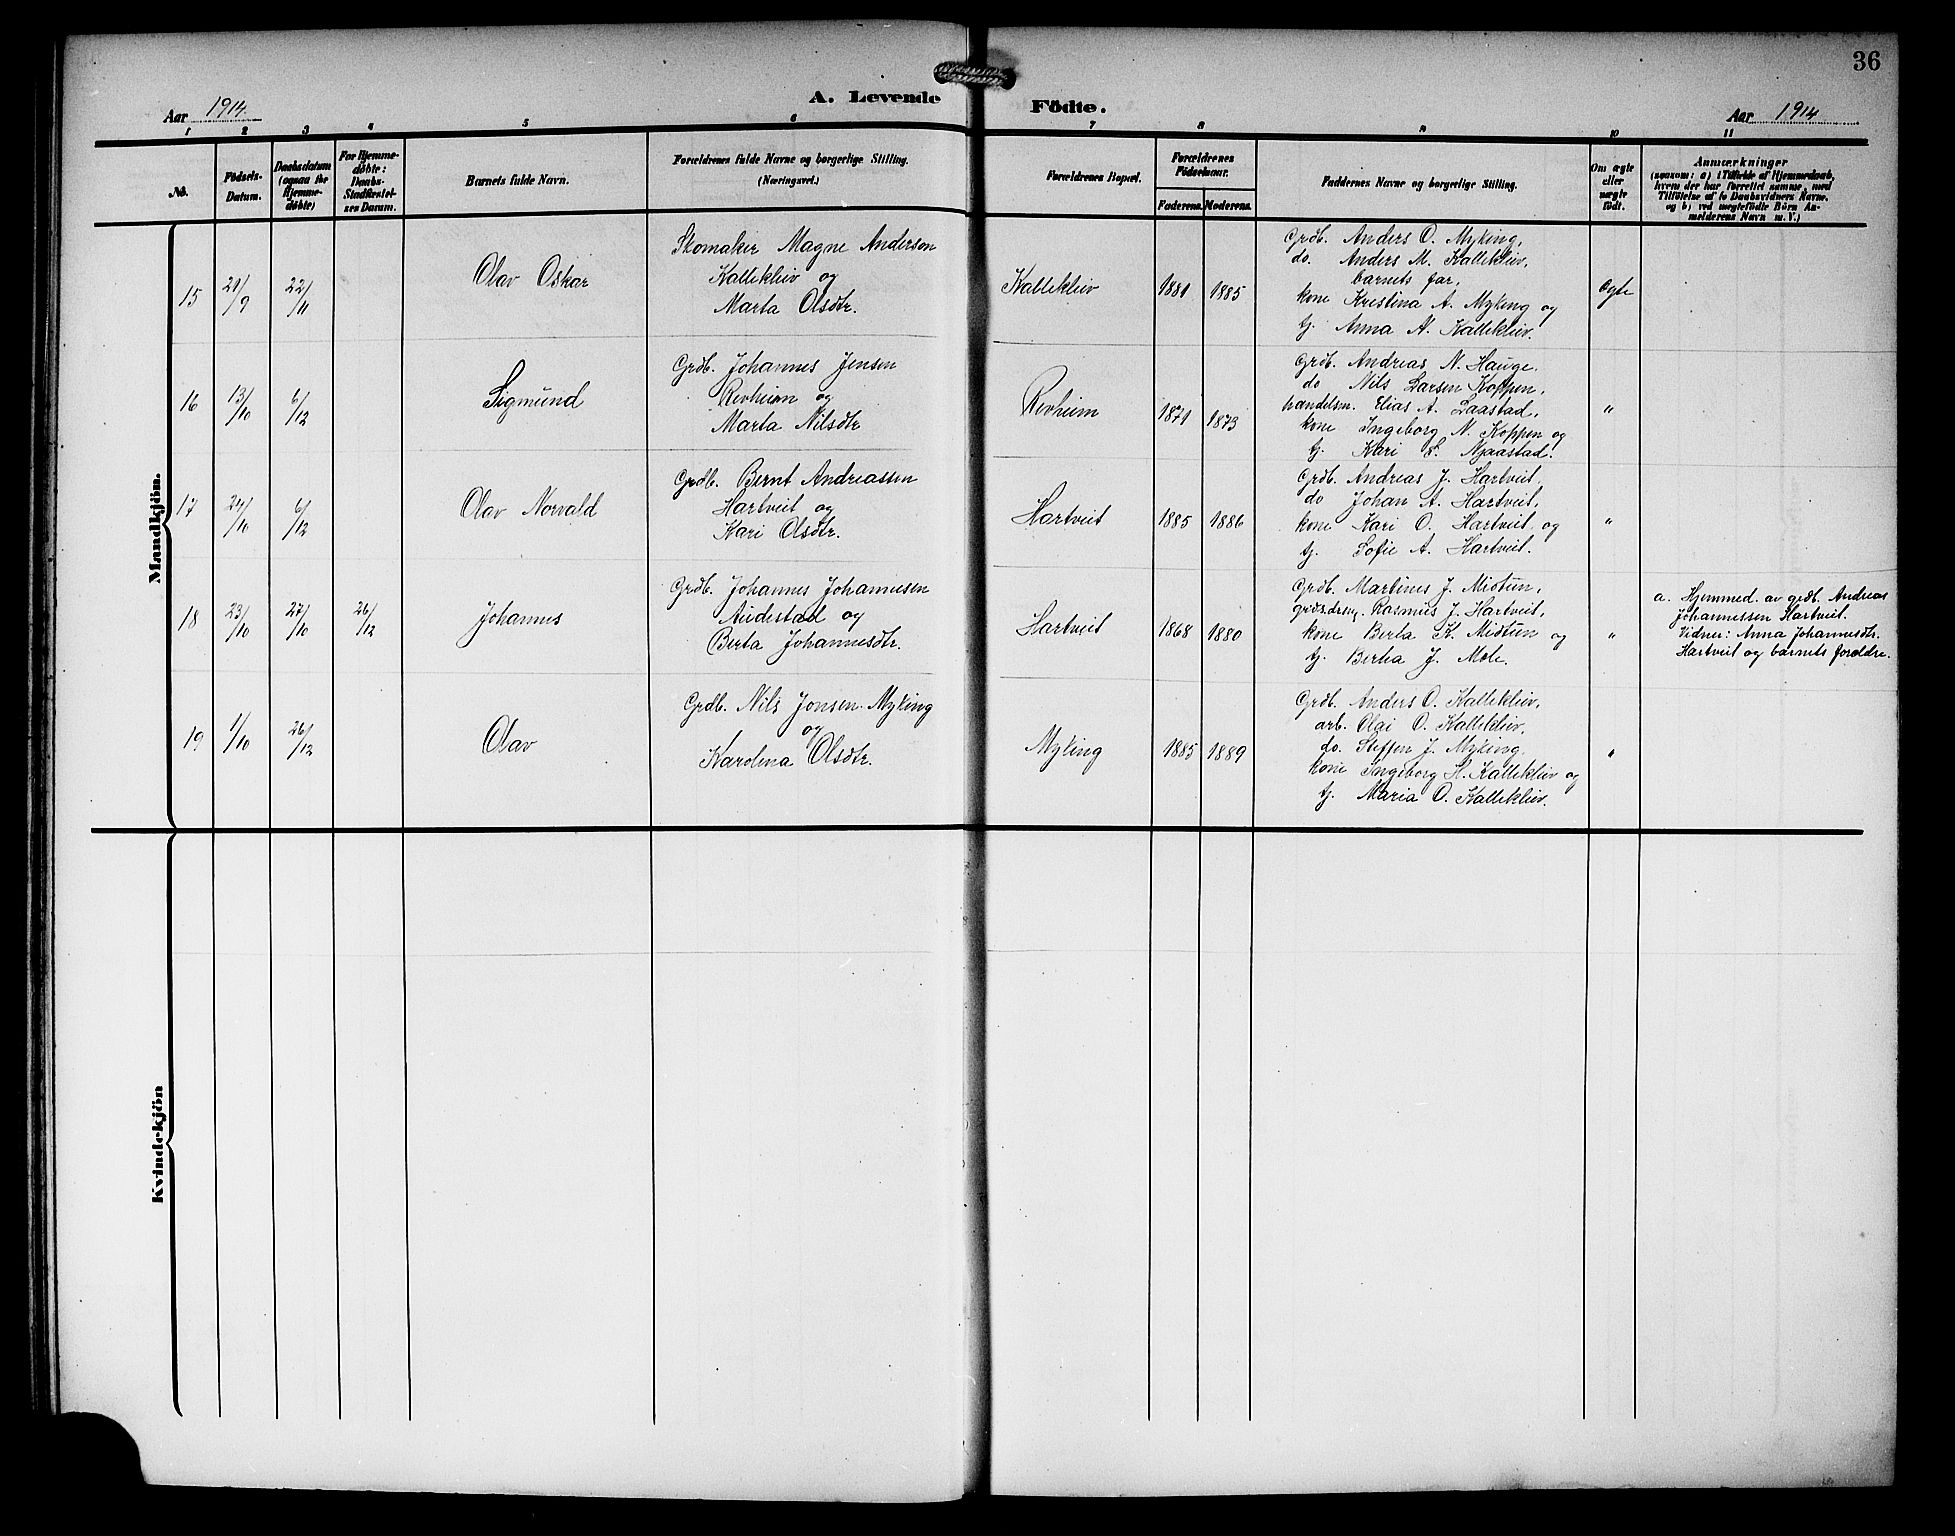 36
Aar 1914.
A. Levende Födte.
Aar 1914
1 2 3 4 5 6 7 8 9 10 11
No.
Födsels-
Datum.
Daabsdatum
(ogsaa for
Hjemme-
döbte)
For Hjemme-
döbte:
Daabs-
Stadfæstel-
ses Datum.
Barnets fulde Navn.
Forældrenes fulde Navne og borgerlige Stilling.
(Næringsvei.)
Forældrenes Bopæl.
Forældrenes
Födselsaar.
Faderens. Moderens.
Faddernes Navne og borgerlige Stilling.
Om ægte
eller
uægte
födt.
Anmærkninger
(saasom: a) i Tilfælde af Hjemmedaab,
hvem der har forrettet samme, med
Tilföielse af to Daabsvidners Navne.
og b) ved uægtefödte Börn An-
melderens Navn m. V.)
Mandkjön.
15
21/9
22/11
Olav Oskar
Skomaker Magne Andersen
Kallekleiv og
Marta Olsdtr.
Kallekleiv
1881
1885
Grdb. Anders O. Myking,
do. Anders M. Kallekleiv,
barnets far,
kone Kristina A. Myking og
tj. Anna A. Kallekleiv.
Egte
16
13/10
6/12
Sigmund
Grdb. Johannes Jensen
Revheim og
Marta Nilsdtr
Revheim
1871
1873
Grdb. Andreas N. Hauge.
do Nils Larsen Koppen,
handelsm. Elias A. Laastad,
kone Ingeborg N. Koppen og
tj. Kari L. Njaastad.
"
17
24/10
6/12
Olav Norvald
Grdb. Bernt Andreassen
Hartveit og
Kari Olsdtr.
Hartveit
1885
1886
Grdb. Andreas J. Hartveit,
do Johan A. Hartveit,
kone Kari O. Hartveit og
tj. Sofie A. Hartveit.
"
18
23/10
27/10
26/12
Johannes
Grdb. Johannes Johannesen
Audestad og
Berta Johannesdtr.
Hartveit
1868
1880
Grdb. Martines J. Midtun,
grdsdreng. Rasmus J. Hartveit,
kone Berta K. Midtun og
tj. Berta J. Mole.
"
a. Hjemmed. av grdb. Andreas
Johannessen Hartveit.
Vidner: Anna Johannesdtr.
Hartveit og barnets foreldre.
19
1/10
26/12
Olav
Grdb. Nils Jonsen Myking
og
Karolina Olsdtr.
Myking
1885
1889
Grdb. Anders O. Kallekleiv,
arb. Olai O. Kallekleiv,
do. Steffen J. Myking,
kone Ingeborg H. Kallekleiv og
tj. Maria O. Kallekleiv.
"
Kvindekjön